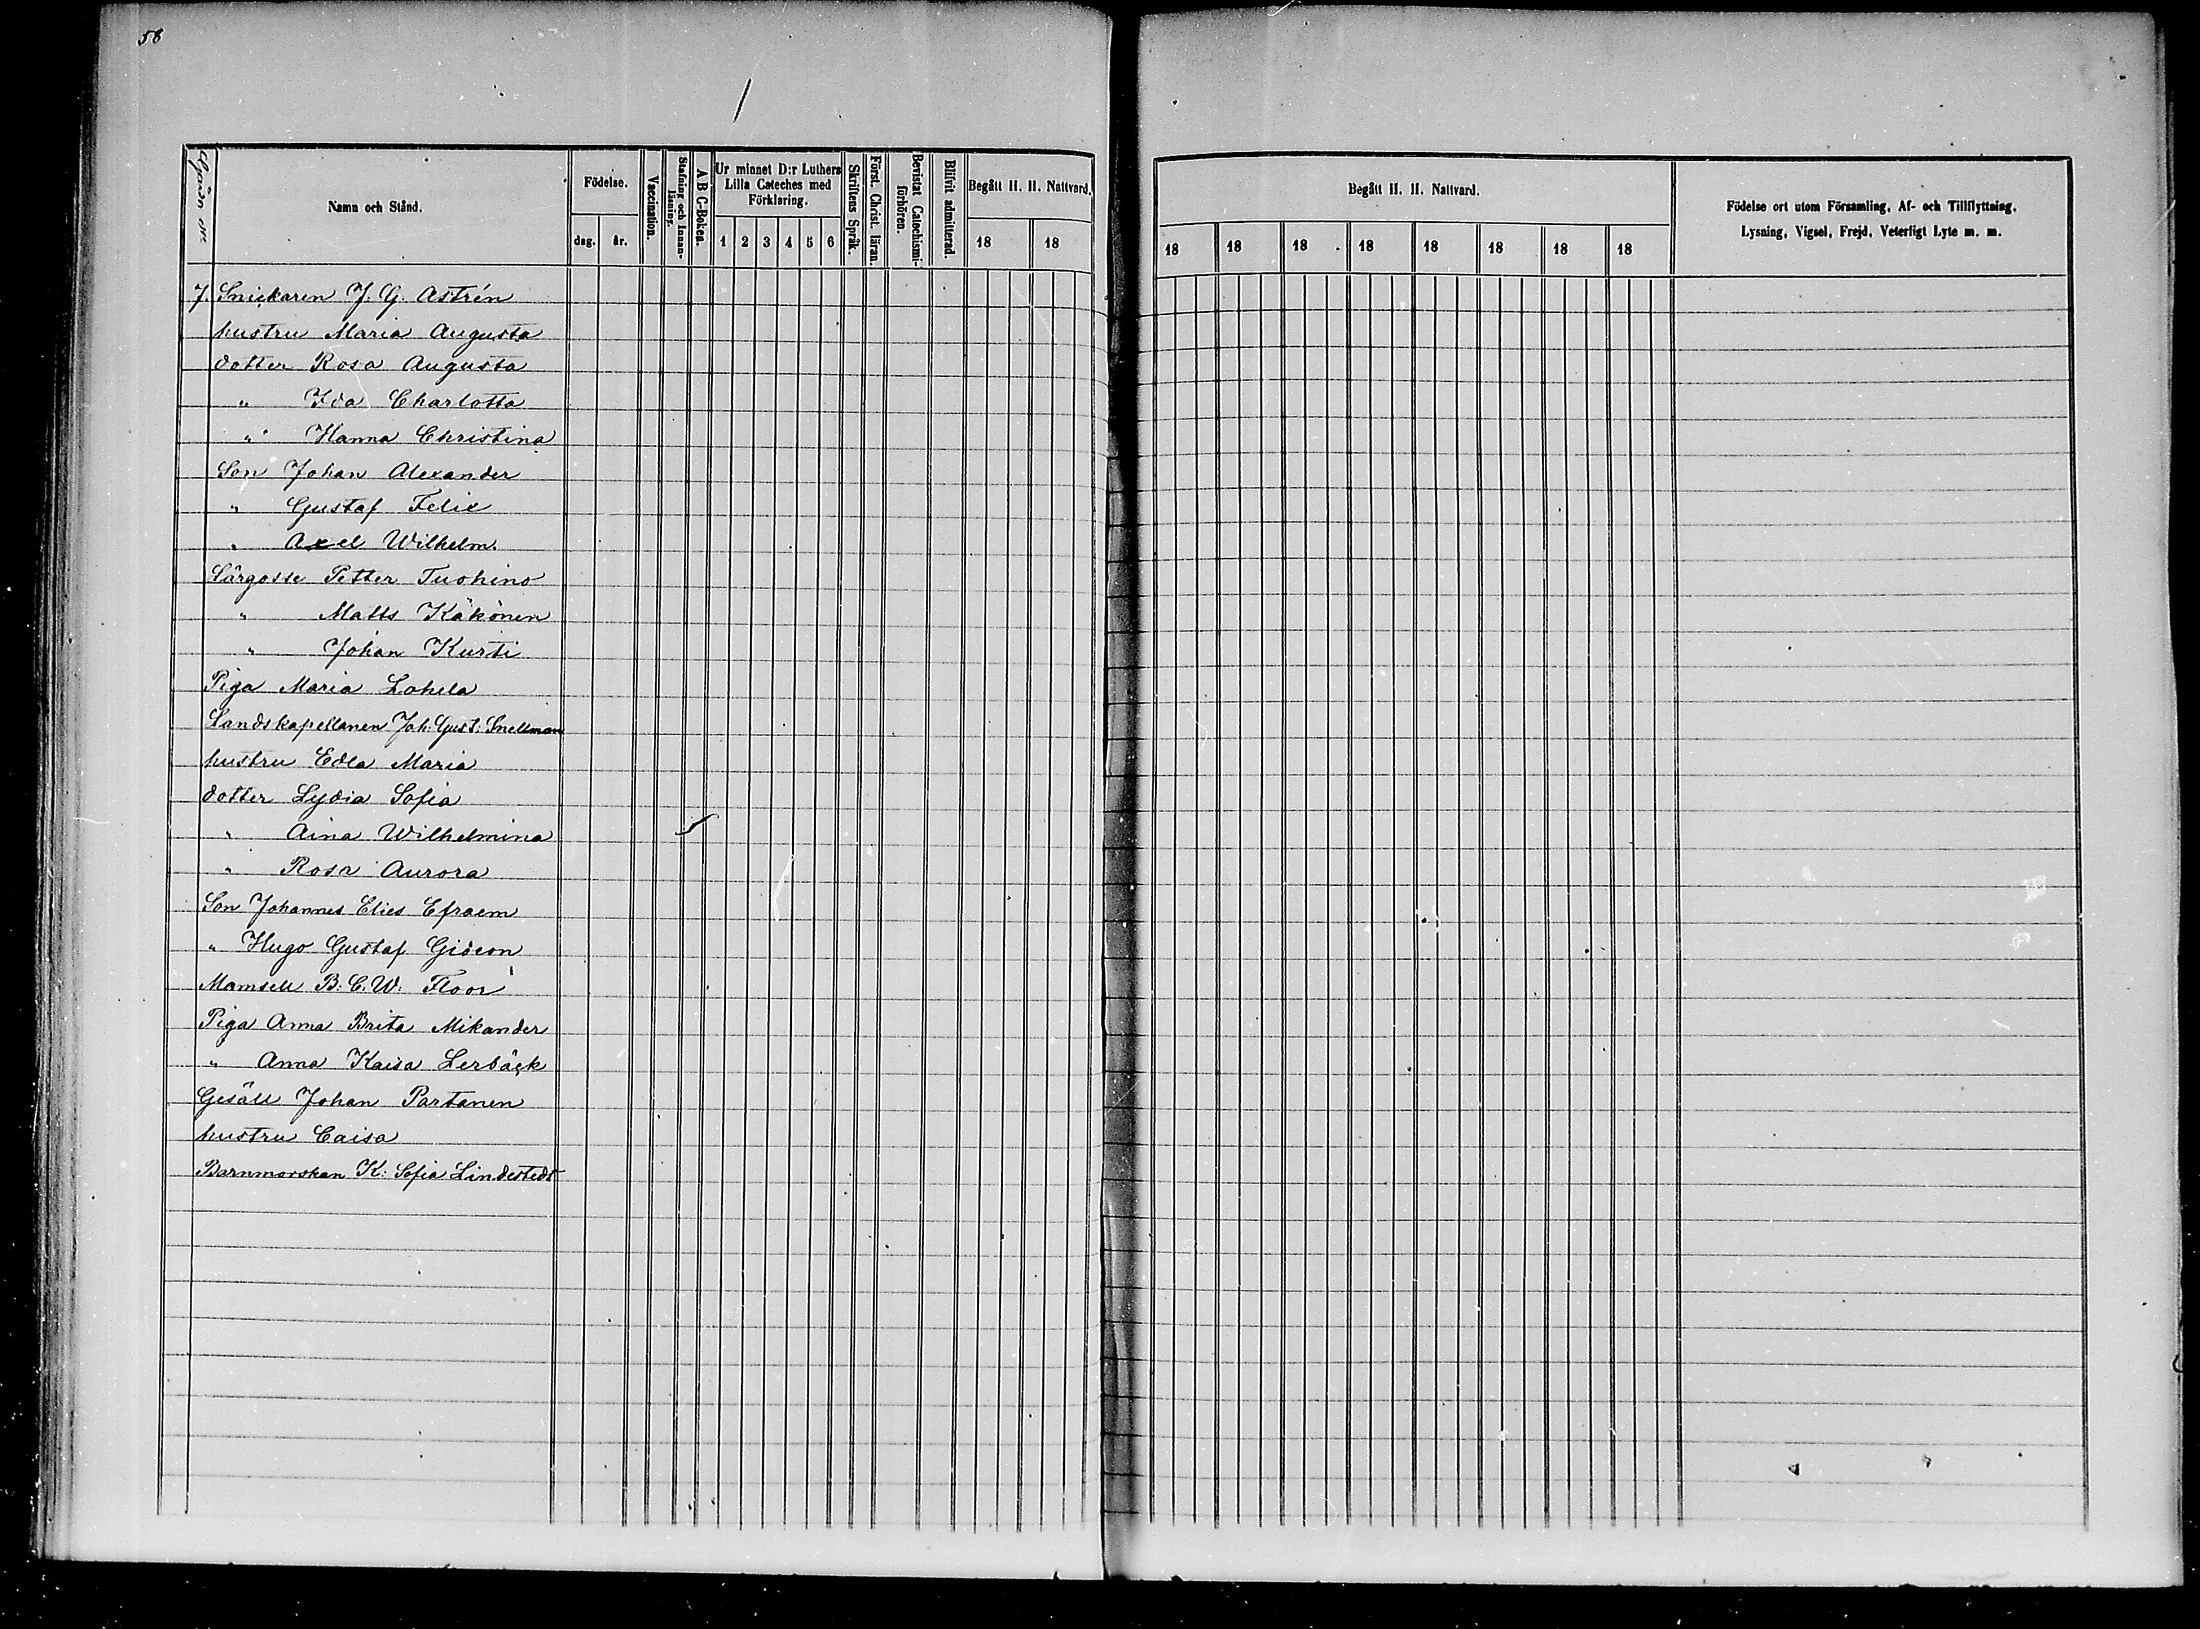 58
Gården No
Namn och Stånd.
Födelse.
dag. år.
Vaccination.
Stafning och Innan-läsning.
A B C-Boken.
Ur minnet D:r Luthers
Lilla Cateches med
Förklaring.
1 2 3 4 5 6
Skriftens Språk.
Först. Christ. läran.
Bevistat Catechismi-förhören.
Blifvit admitterad.
Begått H. H. Nattvard.
18 18
Begått H. H. Nattvard.
18 18 18 18 18 18 18 18
Födelse ort utom Församling, Af- och Tillflyttning,
Lysning, Vigsel, Frejd, Veterligt Lyte m. m.
7. Snickaren J. G. Astrén
hustru Maria Augusta
dotter Rosa Augusta
" Ida Charlotta
" Hanna Christina
Son Johan Alexander
" Gustaf Felix
" Axel Wilhelm.
Lärgosse Petter Tuohino
" Matts Käkönen
" Johan Kurti
Piga Maria Lohela
Landskapellanen Joh: Gust: Snellman
hustru Edla Maria
dotter Lydia Sofia
" Aina Wilhelmina
" Rosa Aurora
Son Johannes Elies Efraem
" Hugo Gustaf Gideon
Mamsell B: C. W: Floor
Piga Anna Brita Mikander
" Anna Kaisa Lerbäck
Gesäll Johan Partanen
hustru Caisa
Barnmorskan K: Sofia Lindestedt